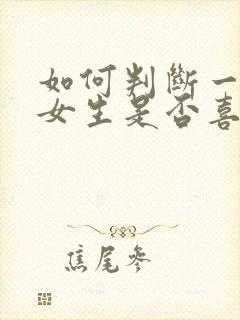 如何判斷一
女生是否喜
焦尾參